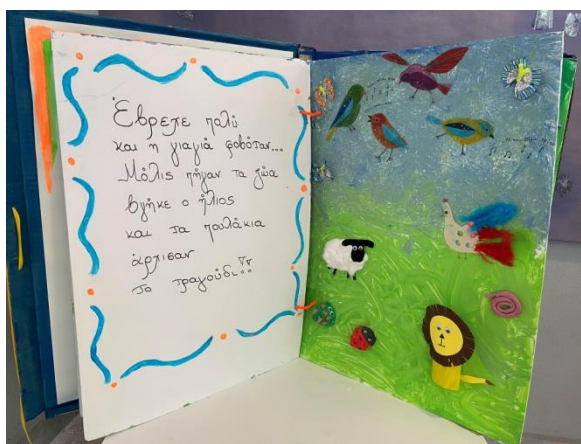 Έβρεχε πολύ
και η γιαγιά φοβόταν...
Μόλις πήγαν τα ζώα
βγήκε ο ήλιος
και τα πουλάκια
άρχισαν
το τραγούδι!!